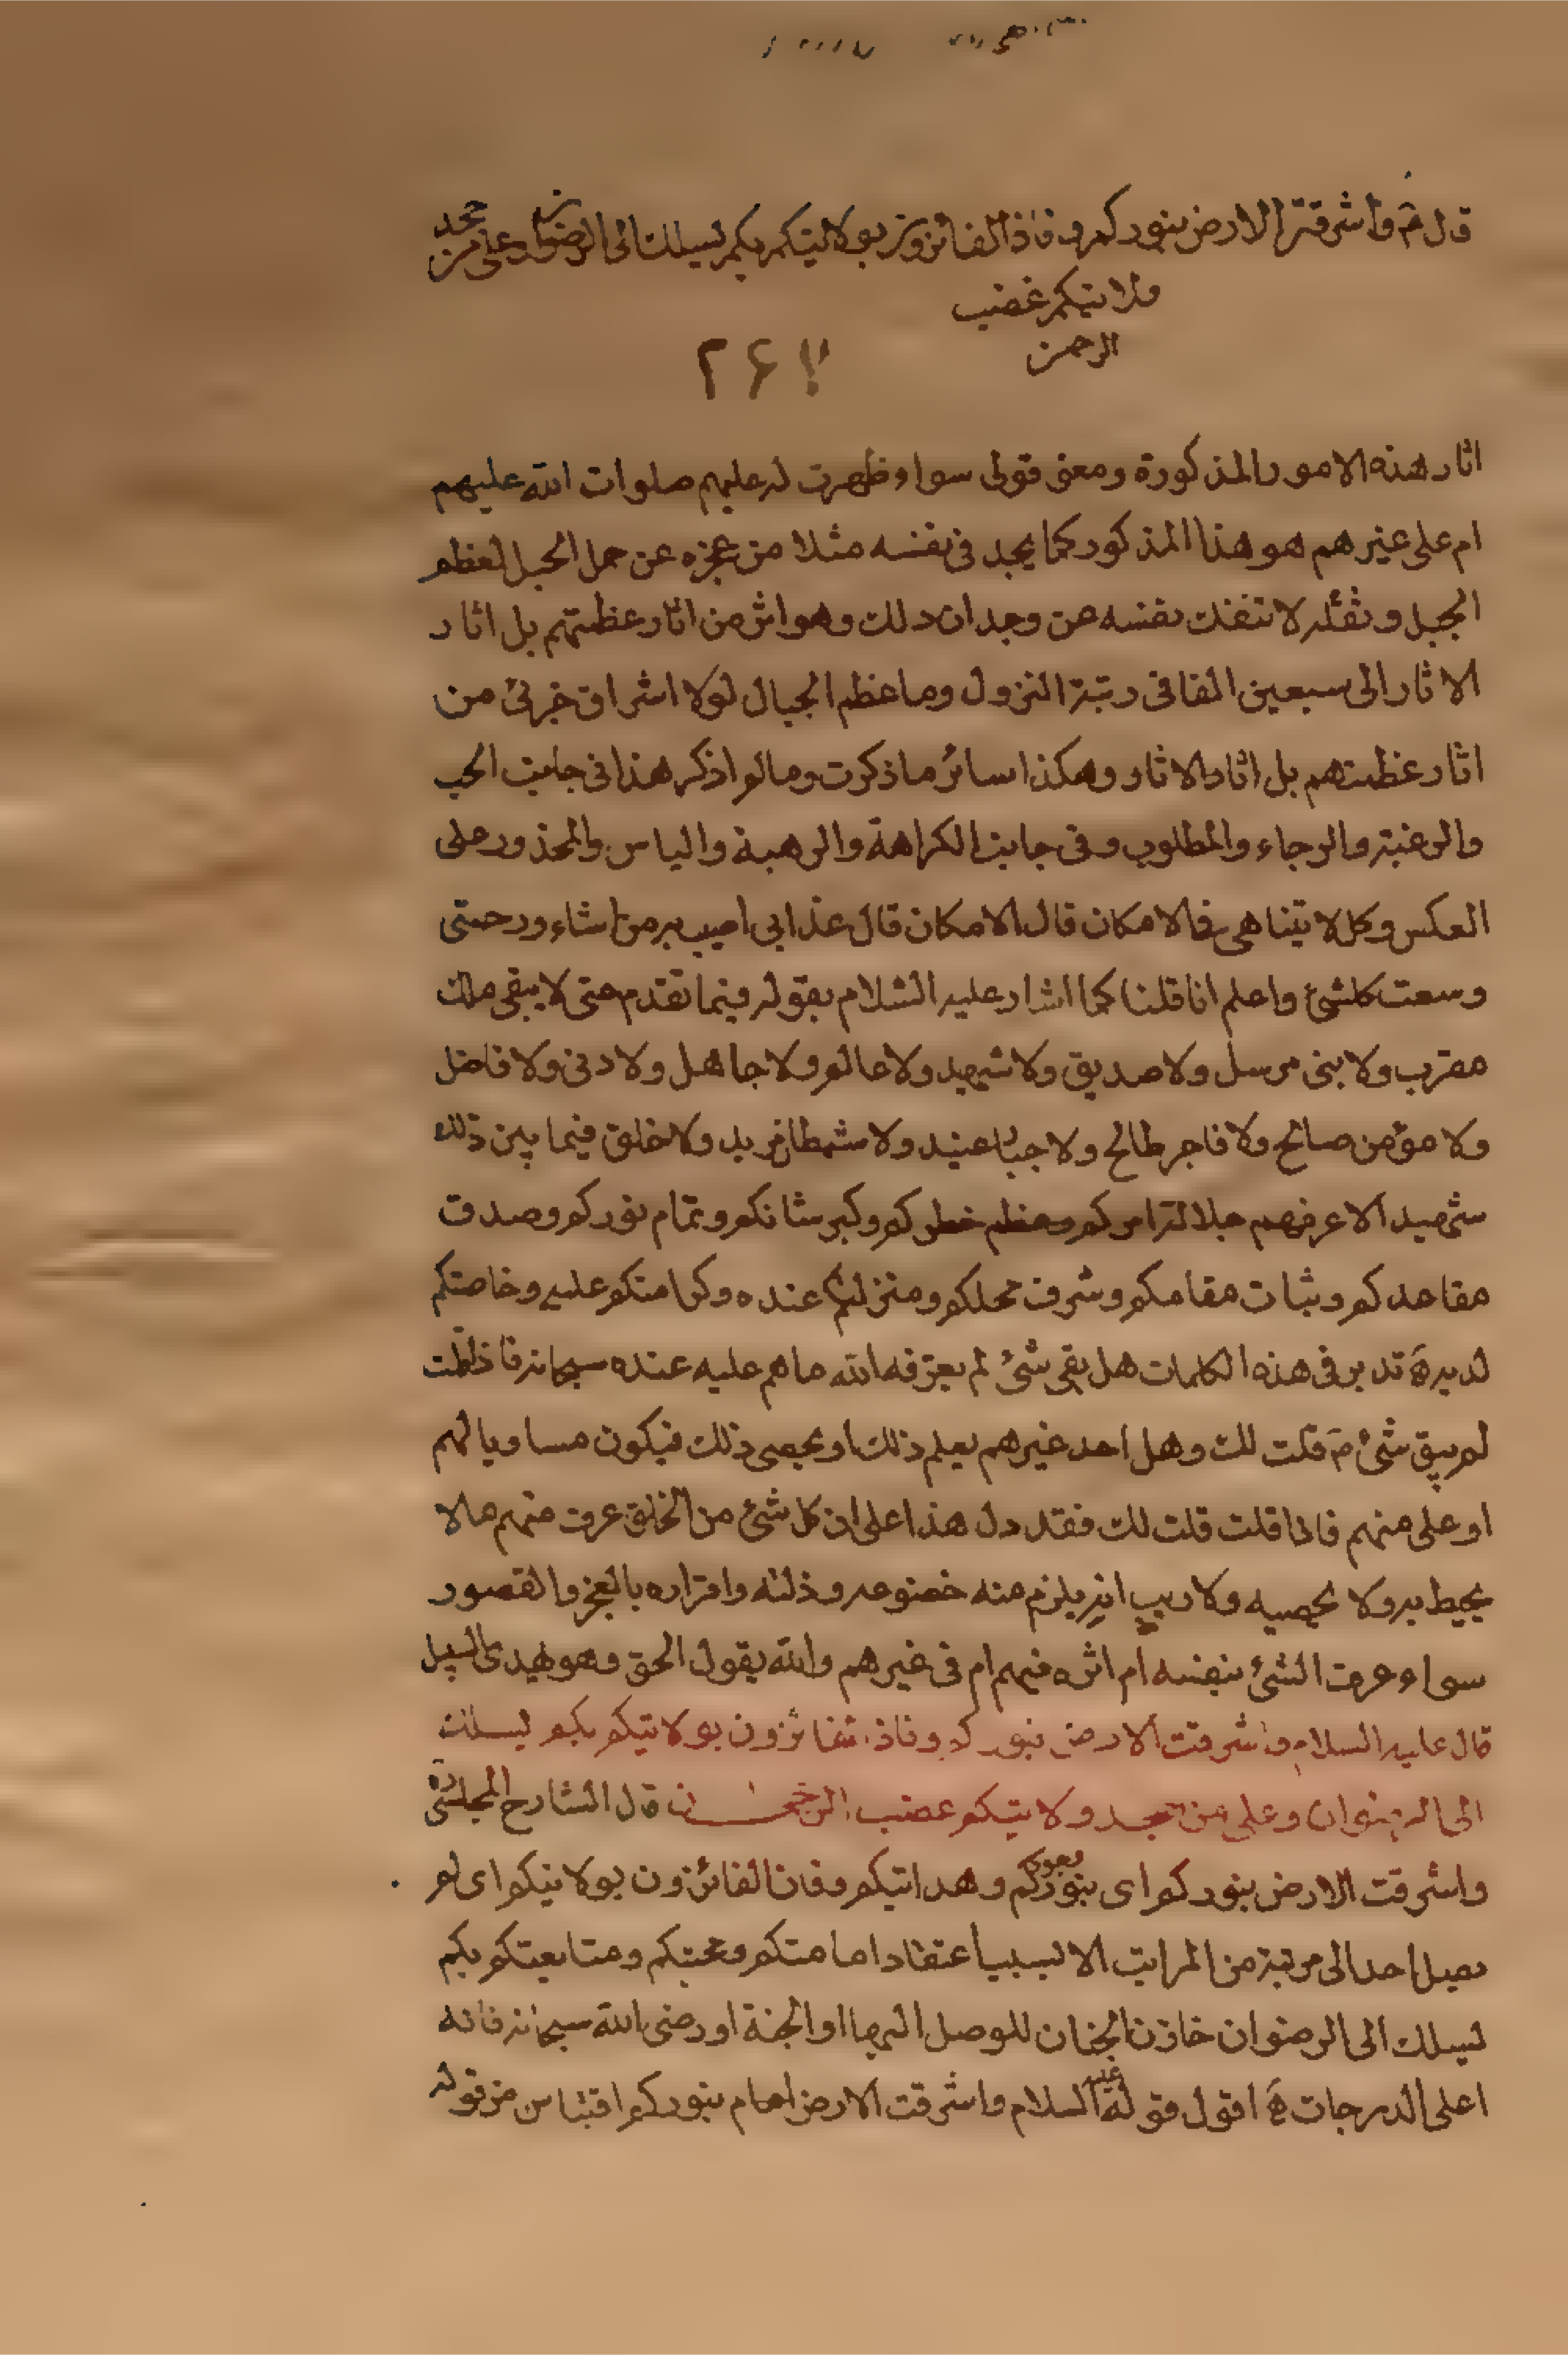 قال ع واشرقت الارض بنوركم وفاذ الفائزون بولايتكم بكم يسلك الى الرضوان وعلى من جحد
ولايتكم غضب
الرحمن
۲۶
اثار هذه الامور المذكورة ومعنى قولى سواء ظهرت له عليهم صلوات الله عليهم
ام على غيرهم هو هذا المذكور كما يجد فى نفسه مثلا من عجزه عن حمل الجبل لعظم
الجبل وثقله لا تنفك نفسه عن وجدان ذلك وهو اثر من اثار عظمتهم بل اثار
الاثار الى سبعين الفا فى رتبة النزول وما عظم الجبال لولا اشراق جزئى من
اثار عظمتهم بل اثار الاثار وهكذا سائر ما ذكرت وما لم اذكر هذا فى جانب الحب
والرغبة والرجاء والمطلوب وفى جانب الكراهة والرهبة والياس والمحذور على
العكس وكل لا يتناهى فى الامكان قال الامكان قال عذابى اصيب به من اشاء ورحمتى
وسعت كلشئ واعلم انا قلنا كما اشار عليه السلام بقوله فيما تقدم حتى لا يبقى ملك
مقرب ولا نبى مرسل ولا صديق ولا شهيد ولا عالم ولا جاهل ولا دنى ولا فاضل
ولا مؤمن صالح ولا فاجر طالح ولا جبار عنيد ولا شيطان مريد ولا خلق فيما بين ذلك
شهيد الا عرفهم جلالة امركم وعظم خطركم وكبر شانكم وتمام نوركم وصدق
مقاعدكم وثبات مقامكم وشرف محلكم ومنزلتكم عنده وكرامتكم عليه وخاصتكم
لديه تدبر فى هذه الكلمات هل بقى شئ لم يعرفه الله ما هم عليه عنده سبحانه فاذا قلت
لم يبق شئ قلت لك وهل احد غيرهم يعلم ذلك او يحصى ذلك فيكون مساويا لهم
او على منهم فاذا قلت قلت لك فقد دل هذا على ان كل شئ من الخلق عرف منهم ما لا
يحيط به ولا يحصيه ولا ريب انه يلزم منه خضوعه وذلته واقراره بالعجز والقصور
سواء عرف الشئ بنفسه ام اثره فيهم ام فى غيرهم والله يقول الحق وهو يهدى السبيل
قال عليه السلام واشرقت الارض بنوركم وفاذ الفائزون بولايتكم بكم يسلك
الى الرضوان وعلى من جحد ولايتكم غضب الرحمن قال الشارح المجلسى ره
واشرقت الارض بنوركم اى بنور وجودكم وهدايتكم وفاذ الفائزون بولايتكم اى لم
يصل احد الى مرتبة من المراتب الا بسبب اعتقاد امامتكم ومحبتكم ومتابعتكم بكم
يسلك الى الرضوان خازن الجنان للوصل اليها او الجنة او رضى الله سبحانه فانه
اعلى الدرجات اقول قوله عليه السلام واشرقت الارض امام بنوركم اقتباس من قوله